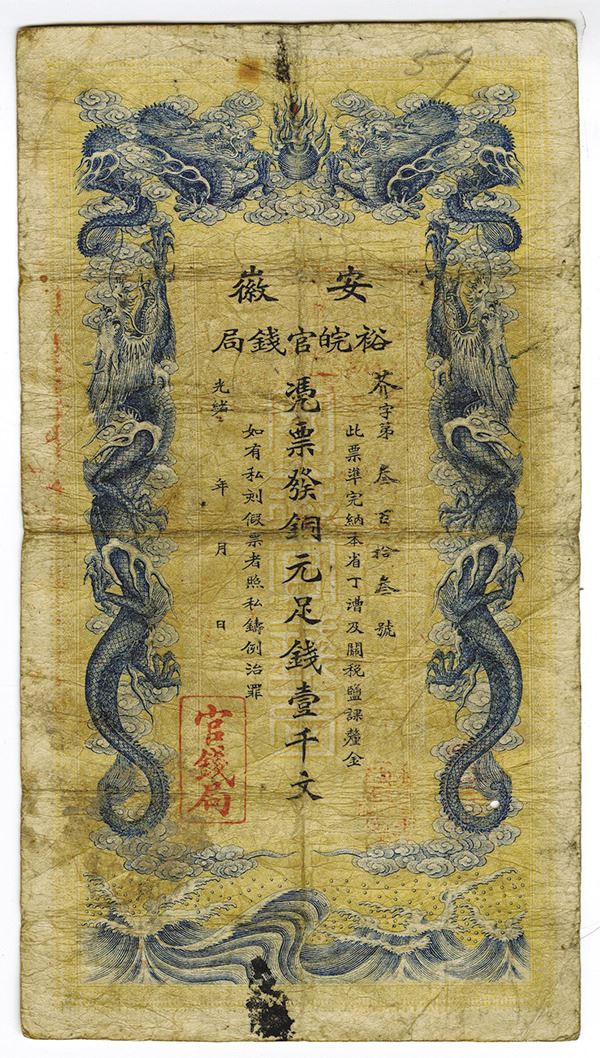 安徽
裕皖官錢局
芥字第叁百拾叁號
此票準完納本省丁漕及關税鹽課釐金
憑票發銅元足錢壹千文
如有私刻假票者照私鑄例治罪
光緒 年 月 日
官錢局
59